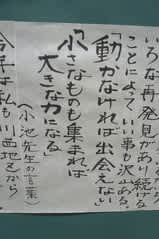 いろな再発見があり続ける
ことによって、いい事も沢山ある。
「動かなければ出会えない」
「小さなものも集まれば
大きな力になる」
(小池先生の言葉)
今年は私も川西地区から